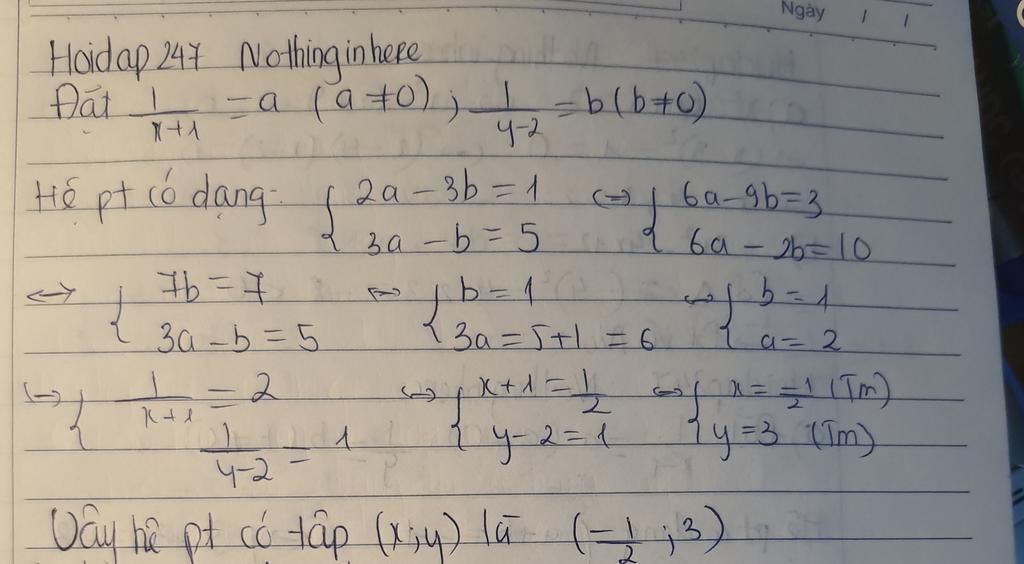 Ngày / /
Hoidap247 Nothinginhere
Đặt 1/(x+1) = a (a ≠ 0); 1/(y-2) = b (b ≠ 0)
Hệ pt có dạng: { 2a - 3b = 1 ; 3a - b = 5 ⇔ { 6a - 9b = 3 ; 6a - 2b = 10
⇔ { 7b = 7 ; 3a - b = 5 ⇔ { b = 1 ; 3a = 5+1 = 6 ⇔ { b = 1 ; a = 2
⇔ { 1/(x+1) = 2 ; 1/(y-2) = 1 ⇔ { x+1 = 1/2 ; y-2 = 1 ⇔ { x = -1/2 (Tm) ; y = 3 (Tm)
Vậy hệ pt có tập (x;y) là (-1/2 ; 3)